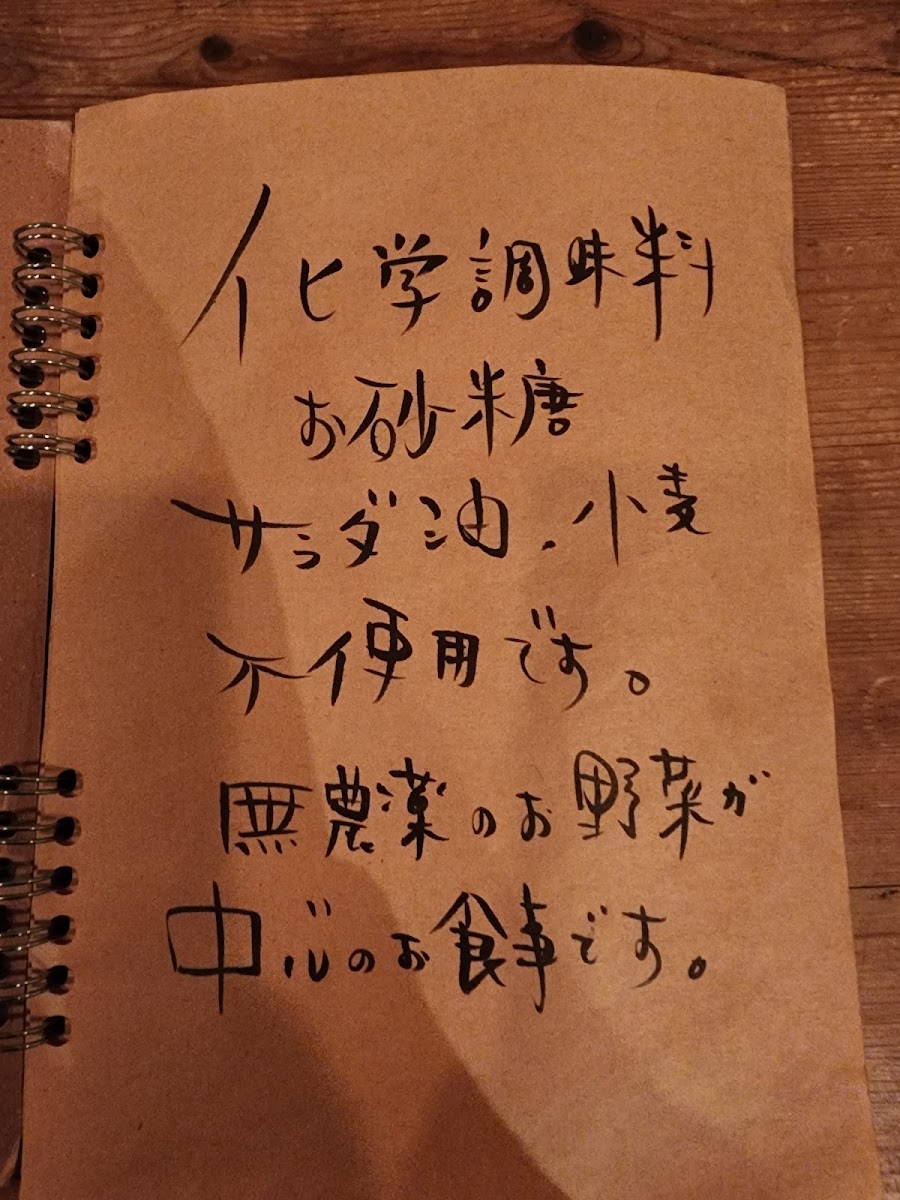 化学調味料
お砂糖
サラダ油、小麦
不使用です。
無農薬のお野菜が
中心のお食事です。